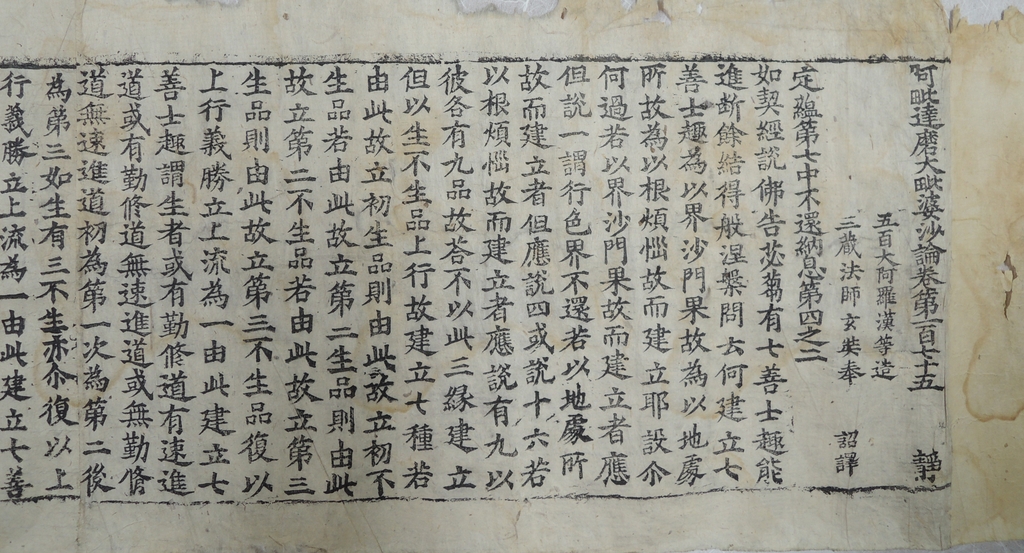 阿毗達磨大毗婆沙論卷第一百七十五 靜
五百大阿羅漢等造
三蔵法師玄奘奉 詔譯
定蘊第七中不還納息第四之二
如契經說佛告苾芻有七善士趣能
進斷餘結得般涅槃問云何建立七
善士趣為以界沙門果故為以地處
所故為以根煩惱故而建立耶設尒
何過若以界沙門果故而建立者應
但說一謂行色界不還若以地處所
故而建立者但應說四或說十六若
以根煩惱故而建立者應說有九以
彼各有九品故荅不以此三緣建立
但以生不生品上行故建立七種若
由此故立初生品則由此故立初不
生品若由此故立第二生品則由此
故立第二不生品若由此故立第三
生品則由此故立第三不生品復以
上行義勝立上流為一由此建立七
善士趣謂生者或有勤修道有速進
道或有勤修道無速進道或無勤修
道無速進道初為第一次為第二後
為第三如生有三不生亦尒復以上
行義勝立上流為一由此建立七善